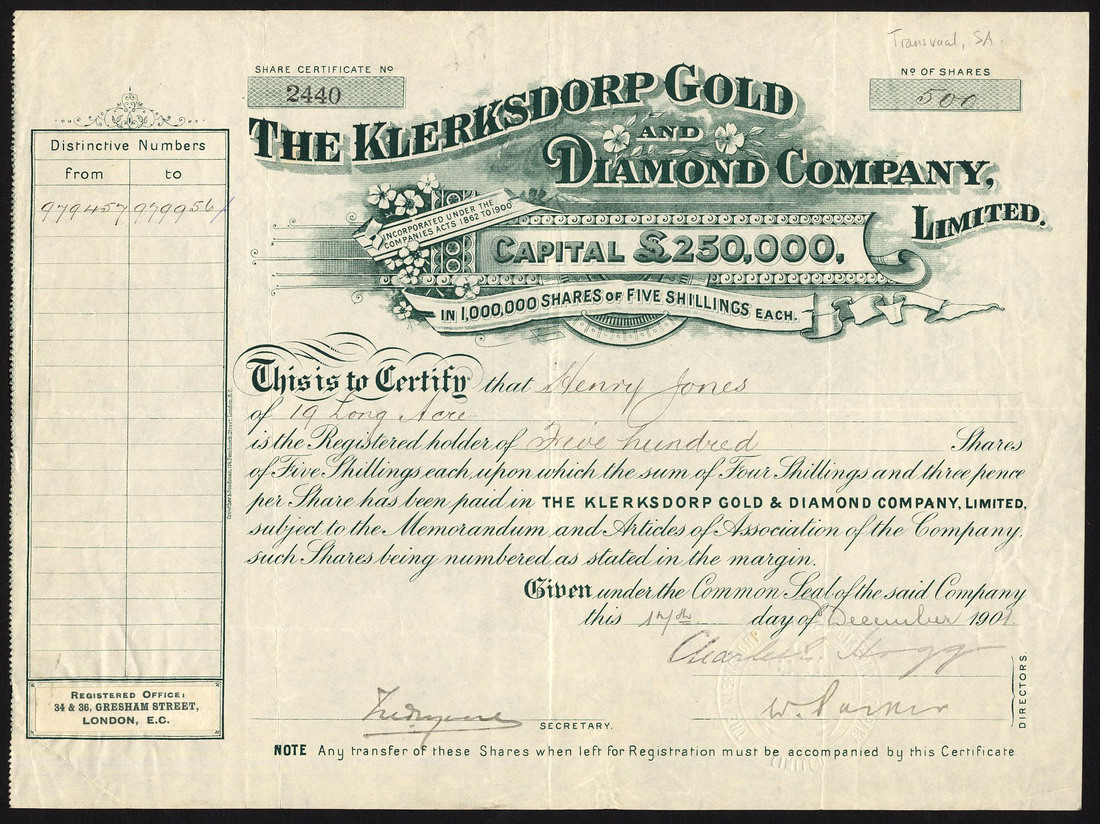 Transvaal, SA.
SHARE CERTIFICATE No
2440
No OF SHARES
500
THE KLERKSDORP GOLD
AND
DIAMOND COMPANY,
LIMITED.
INCORPORATED UNDER THE
COMPANIES ACTS 1862 TO 1900
CAPITAL £250,000,
IN 1,000,000 SHARES OF FIVE SHILLINGS EACH.
Distinctive Numbers
from to
979457 979956
This is to Certify that Henry Jones
of 19 Long Acre
is the Registered holder of Five hundred Shares
of Five Shillings each, upon which the sum of Four Shillings and three pence
per Share has been paid in THE KLERKSDORP GOLD & DIAMOND COMPANY, LIMITED,
subject to the Memorandum and Articles of Association of the Company,
such Shares being numbered as stated in the margin.
Given under the Common Seal of the said Company
this day of December 1901
Charles E. Hogg
W. Parker
DIRECTORS.
SECRETARY.
REGISTERED OFFICE:
34 & 36, GRESHAM STREET,
LONDON, E.C.
NOTE Any transfer of these Shares when left for Registration must be accompanied by this Certificate